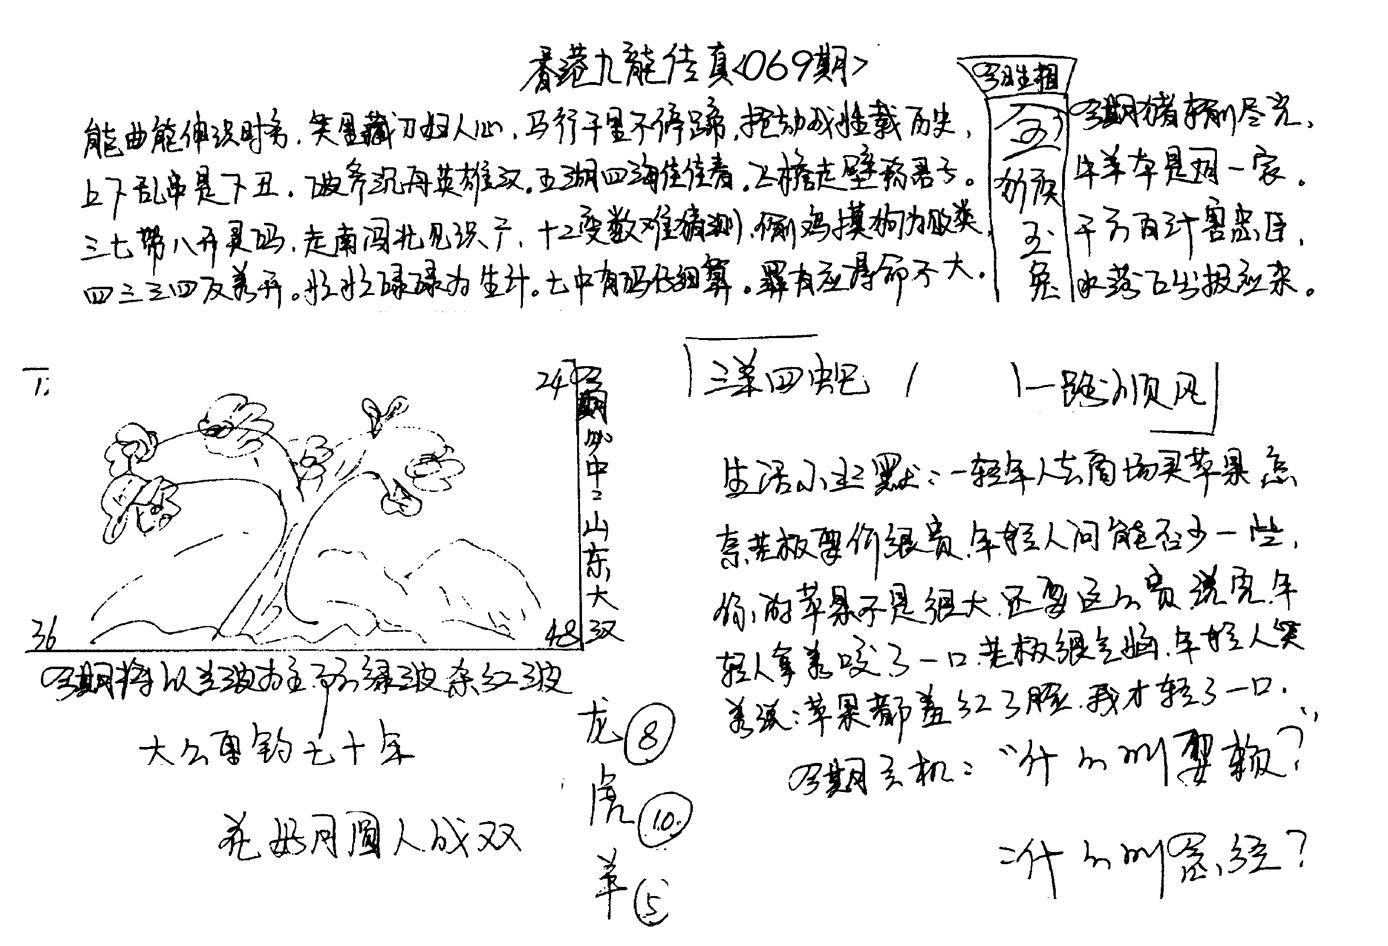 香港九龍传真<069期>
能曲能伸识时务，笑里藏刀妇人心，马行千里不停蹄，
上下乱串是下丑，破斧沉舟英雄汉，五湖四海佳佳春，飞檐走壁称君子。
三七带八开灵码，走南闯北见识广，十二变数难猜测，偷鸡摸狗为败类，
四三三四反着开。忙忙碌碌为生计。七中有码仔细算。罪有应得命不大。
今期生肖相
金
折
玉
兔
今期猪
尽光，
牛羊本是同一家。
千方百计害忠臣，
水落石出报应来。
三羊四蛇 / 一路顺风
24
今期必中：山东大汉
36
48
今期将以兰波为主 绿波 杂红波
太公 钓七十年
花好月圆人成双
龙 8
虎 10
羊 5
生活小 默：一轻年人去商场买苹果怎
奈老板要价很贵，年轻人问能否少一些，
你的苹果不是很大，还要这么贵，说完，年
轻人拿着咬了一口，老板很气恼，年轻人笑
着说：苹果都羞红了脸，我才轻了一口，
今期玄机：“什么叫耍赖？”
：什么叫 ？